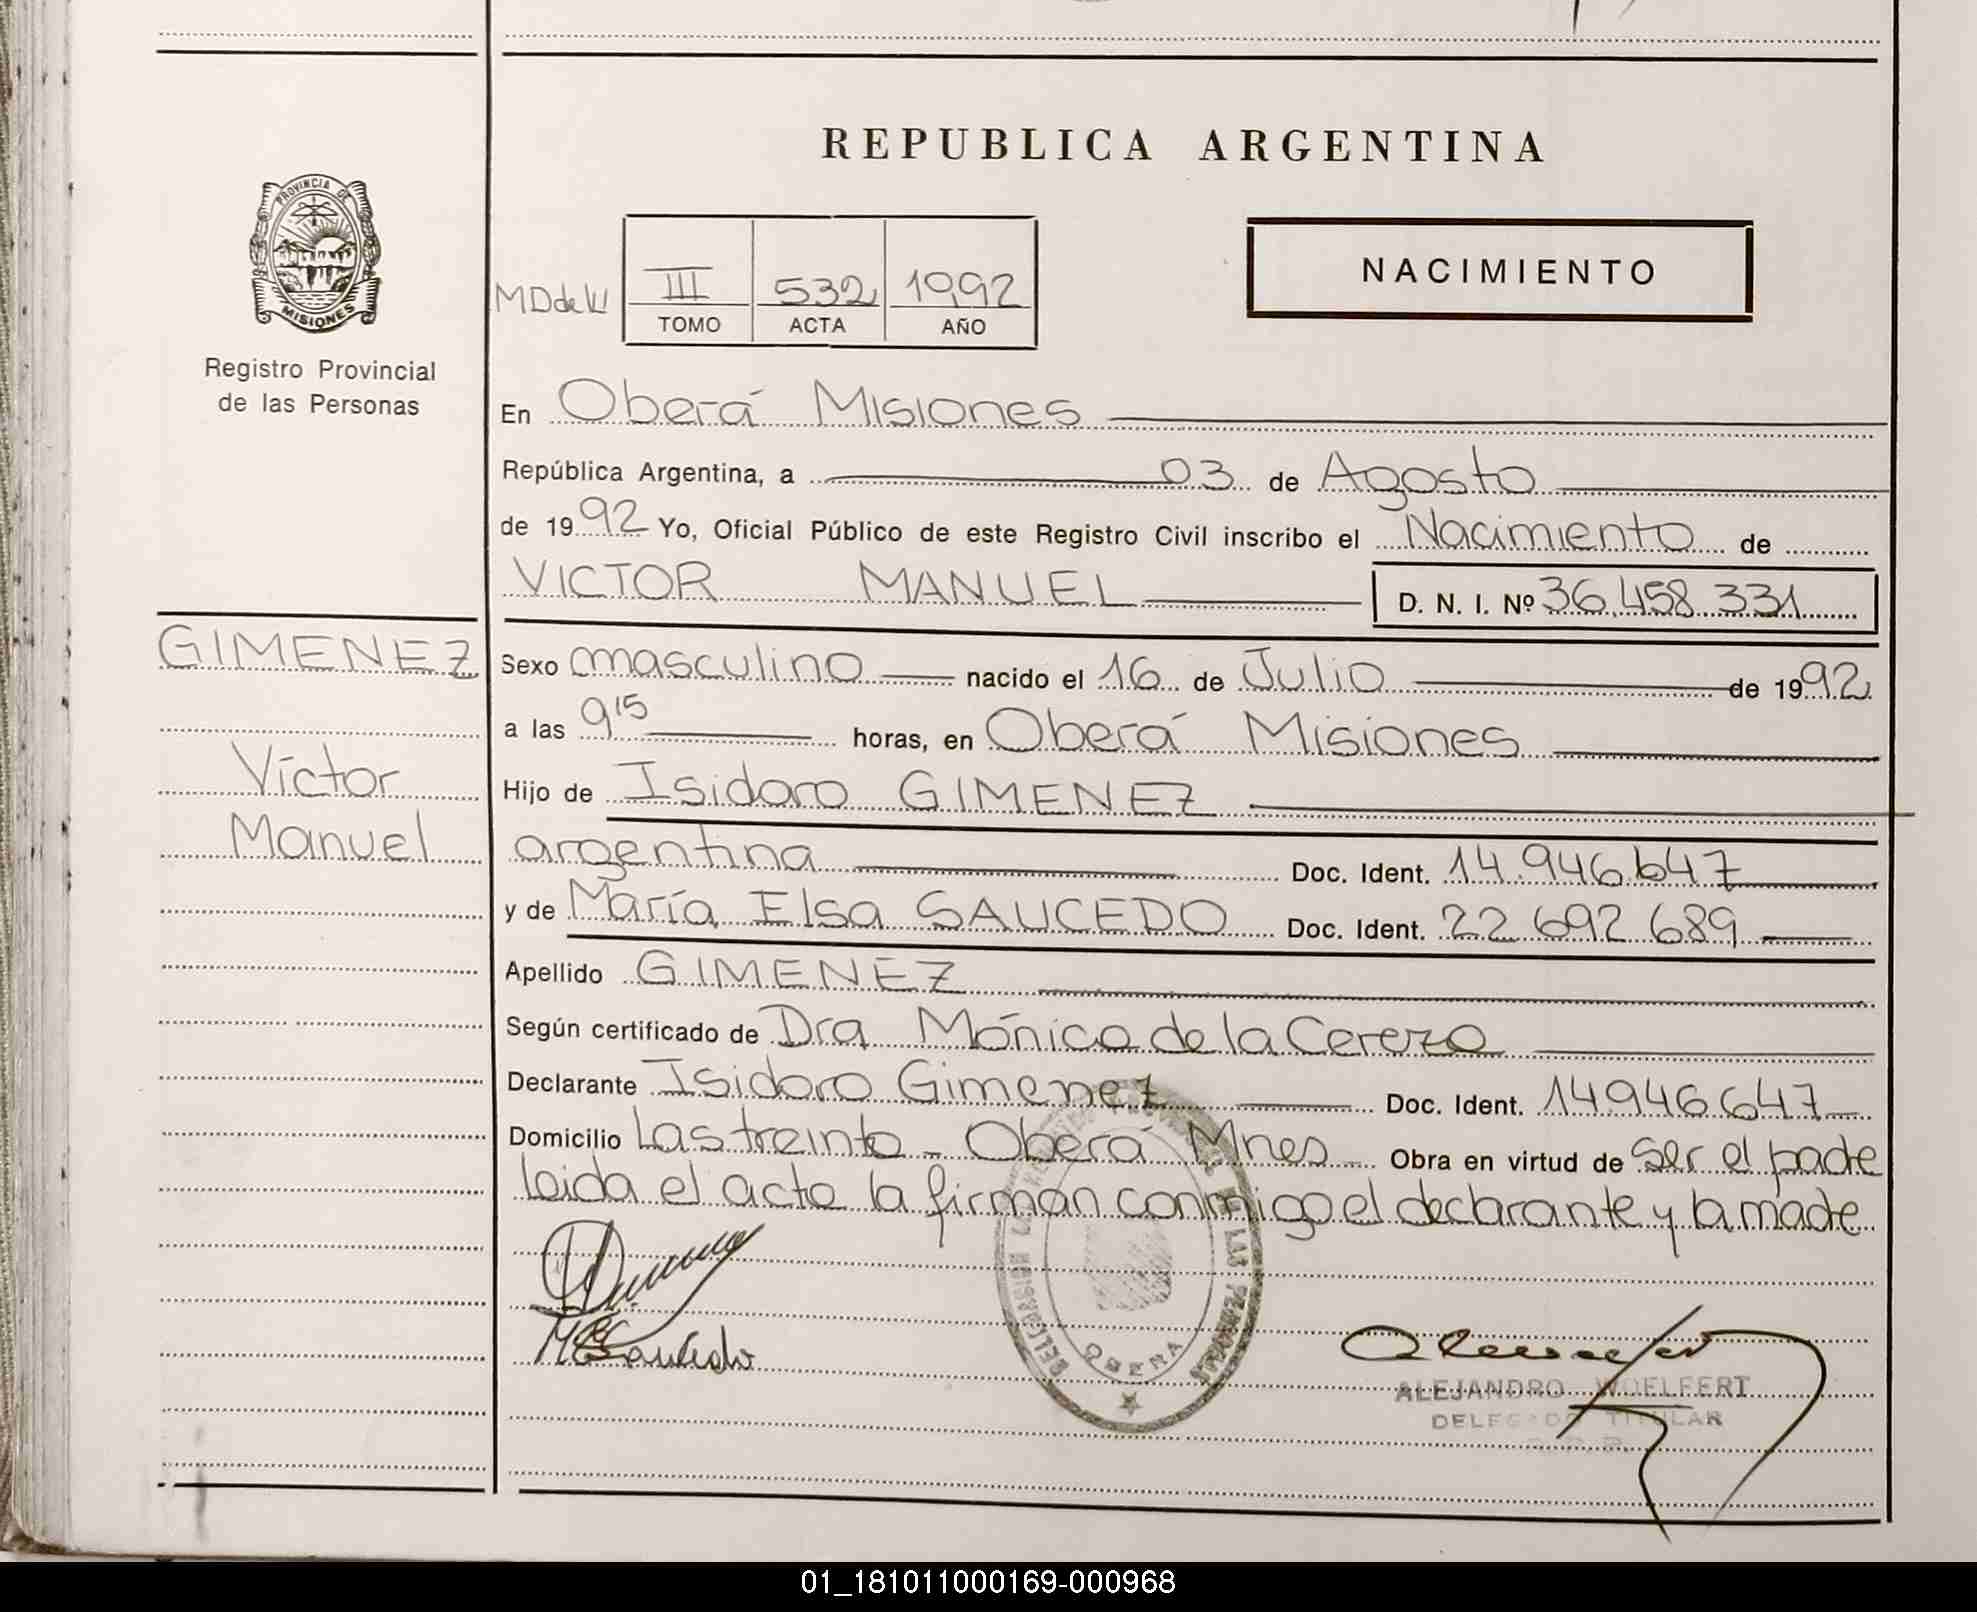 REPUBLICA ARGENTINA
PROVINCIA DE
MISIONES
Registro Provincial
de las Personas
MD de W
III 532 1992
TOMO ACTA AÑO
NACIMIENTO
En Oberá Misiones
República Argentina, a 03 de Agosto
de 1992 Yo, Oficial Público de este Registro Civil inscribo el Nacimiento de
VICTOR MANUEL D. N. I. Nº 36.458.331
GIMENEZ
Víctor
Manuel
Sexo masculino nacido el 16 de Julio de 1992
a las 9 15 horas, en Oberá Misiones
Hijo de Isidoro GIMENEZ
argentina Doc. Ident. 14.946.647
y de María Elsa SAUCEDO Doc. Ident. 22 692 689
Apellido GIMENEZ
Según certificado de Dra Mónica de la Cerezo
Declarante Isidoro Gimenez Doc. Ident. 14946647
Domicilio Las treinta - Oberá Mnes Obra en virtud de ser el padre
leida el acta la firman conmigo el declarante y la madre
DELEGACION
DE LAS PERSONAS
OBERA
ALEJANDRO WOELFERT
DELEGADO TITULAR
01_181011000169-000968